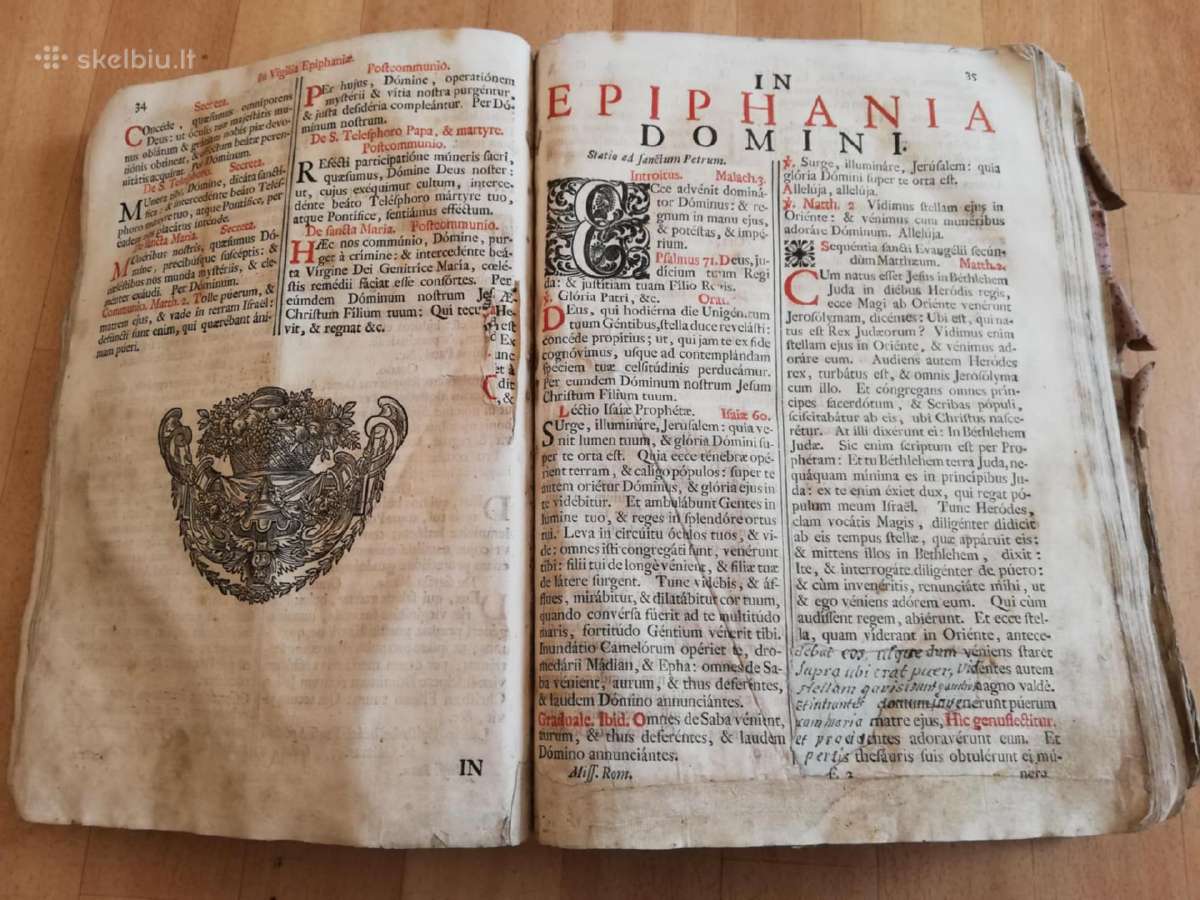 skelbiu.lt
34
In Vigilia Epiphaniæ
Secreta.
COncéde, quæsumus omnípotens
Deus: ut óculis tuæ majestátis mu-
nus oblátum & grátiam nobis piæ devo-
tiónis obtíneat, & efféctum beátæ peren-
nitátis acquírat. Per Dóminum.
De S. Telesphoro. Secreta.
MUnera tibi, Dómine, dicáta sanctí-
fica: & intercedénte beáto Teles-
phoro mártyre tuo, atque Pontífice, per
eadem nos placátus inténde.
De sancta Maria. Secreta.
MUnéribus nostris, quæsumus Dó-
mine, precibúsque suscéptis: &
cæléstibus nos munda mystériis, & cle-
ménter exáudi. Per Dóminum.
Communio. Matth. 2. Tolle púerum, &
matrem ejus, & vade in terram Israël:
defúncti sunt enim, qui quærébant áni-
mam púeri.
Postcommunio.
PEr hujus, Dómine, operatiónem
mystérii & vítia nostra purgéntur,
& justa desidéria compleántur. Per Dó-
minum nostrum.
De S. Telesphoro Papa, & martyre.
Postcommunio.
REfécti participatióne múneris sacri,
quæsumus, Dómine Deus noster:
ut, cujus exéquimur cultum, interce-
dénte beáto Telésphoro mártyre tuo,
atque Pontífice, sentiámus efféctum.
De sancta Maria. Postcommunio.
HÆc nos commúnio, Dómine, pur-
get à crímine: & intercedénte beá-
ta Vírgine Dei Genitríce María, cœlé-
stis remédii fáciat esse consórtes. Per
eúmdem Dóminum nostrum
Christum Fílium tuum: Qui tecum
vit, & regnat &c.
IN
35
IN
EPIPHANIA
DOMINI.
Statio ad sanctum Petrum.
Introitus. Malach. 3.
ECce advénit dominá-
tor Dóminus: & re-
gnum in manu ejus,
& potéstas, & impé-
rium.
Psalmus 71. Deus, ju-
dícium tuum Regi
da: & justítiam tuam Fílio Regis.
℣. Glória Patri, &c. Orat.
DEus, qui hodiérna die Unigénitum
tuum Géntibus, stella duce revelásti:
concéde propítius; ut, qui jam te ex fide
cognóvimus, usque ad contemplándam
spéciem tuæ celsitúdinis perducámur.
Per eumdem Dóminum nostrum Jesum
Christum Fílium tuum.
Léctio Isaíæ Prophétæ. Isaiæ 60.
SUrge, illumináre, Jerusalem: quia ve-
nit lumen tuum, & glória Dómini su-
per te orta est. Quia ecce ténebræ opé-
rient terram, & calígo pópulos: super te
autem oriétur Dóminus, & glória ejus in
te vidébitur. Et ambulábunt Gentes in
lúmine tuo, & reges in splendóre ortus
tui. Leva in circúitu óculos tuos, & vi-
de: omnes isti congregáti sunt, venérunt
tibi: fílii tui de longe vénient, & fíliæ tuæ
de látere surgent. Tunc vidébis, & áf-
flues, mirábitur, & dilatábitur cor tuum,
quando convérsa fúerit ad te multitúdo
maris, fortitúdo Géntium vénerit tibi.
Inundátio Camelórum opériet te, dro-
medárii Mádian, & Epha: omnes de Sa-
ba vénient, aurum, & thus deferéntes,
& laudem Dómino annunciántes.
Graduale. Ibid. Omnes de Saba vénient,
aurum, & thus deferéntes, & laudem
Dómino annunciántes.
Miss. Rom.
℣. Surge, illumináre, Jerúsalem: quia
glória Dómini super te orta est.
Allelúja, allelúja.
℣. Matth. 2 Vídimus stellam ejus in
Oriénte: & vénimus cum munéribus
adoráre Dóminum. Allelúja.
Sequéntia sancti Evangélii secún-
dùm Matthæum. Matth. 2.
CUm natus esset Jesus in Béthlehem
Juda in diébus Heródis regis,
ecce Magi ab Oriénte venérunt
Jerosólymam, dicéntes: Ubi est, qui na-
tus est Rex Judæórum? Vídimus enim
stellam ejus in Oriénte, & vénimus ad-
oráre eum. Audiens autem Heródes
rex, turbátus est, & omnis Jerosólyma
cum illo. Et cóngregans omnes prín-
cipes sacerdótum, & Scribas pópuli,
sciscitabátur ab eis, ubi Christus nasce-
rétur. At illi dixérunt ei: In Béthlehem
Judæ. Sic enim scriptum est per Pro-
phétam: Et tu Béthlehem terra Juda, ne-
quáquam mínima es in princípibus Ju-
da: ex te enim éxiet dux, qui regat pó-
pulum meum Israël. Tunc Heródes,
clam vocátis Magis, diligénter dídicit
ab eis tempus stellæ, quæ appáruit eis:
& mittens illos in Béthlehem, dixit:
Ite, & interrogáte diligénter de púero:
& cùm invenéritis, renunciáte mihi, ut
& ego véniens adórem eum. Qui cùm
audíssent regem, abiérunt. Et ecce stel-
la, quam víderant in Oriénte, antece-
debat eos, usque dum véniens staret
supra ubi erat puer, Vidéntes autem
stellam gavisi sunt gaudio magno valdè.
Et intrantes domum invenérunt púerum
cum Maria matre ejus, Hic genuflectitur.
et procidentes adoravérunt eum. Et
apertis thesáuris suis obtulérunt ei mú-
nera